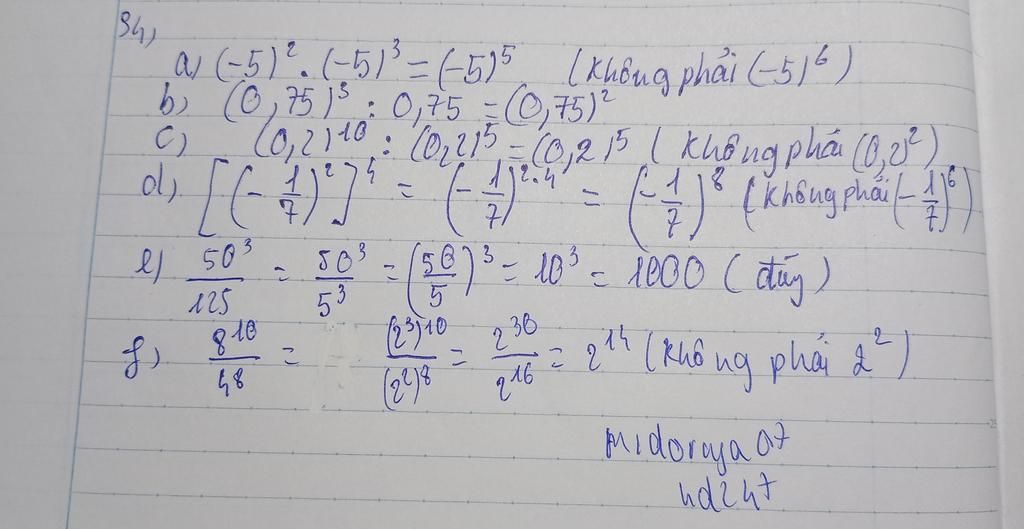 34,
a, (-5)² . (-5)³ = (-5)⁵ (không phải (-5)⁶)
b, (0,75)³ : 0,75 = (0,75)²
c) (0,2)¹⁰ : (0,2)⁵ = (0,2)⁵ (không phải (0,2)²)
d, [(-1/7)²]⁴ = (-1/7)²·⁴ = (-1/7)⁸ (không phải (-1/7)⁶)
e) 50³/125 = 50³/5³ = (50/5)³ = 10³ = 1000 (đúng)
f, 8¹⁰/4⁸ = (2³)¹⁰/(2²)⁸ = 2³⁰/2¹⁶ = 2¹⁴ (không phải 2²)
midoruya07
hd247